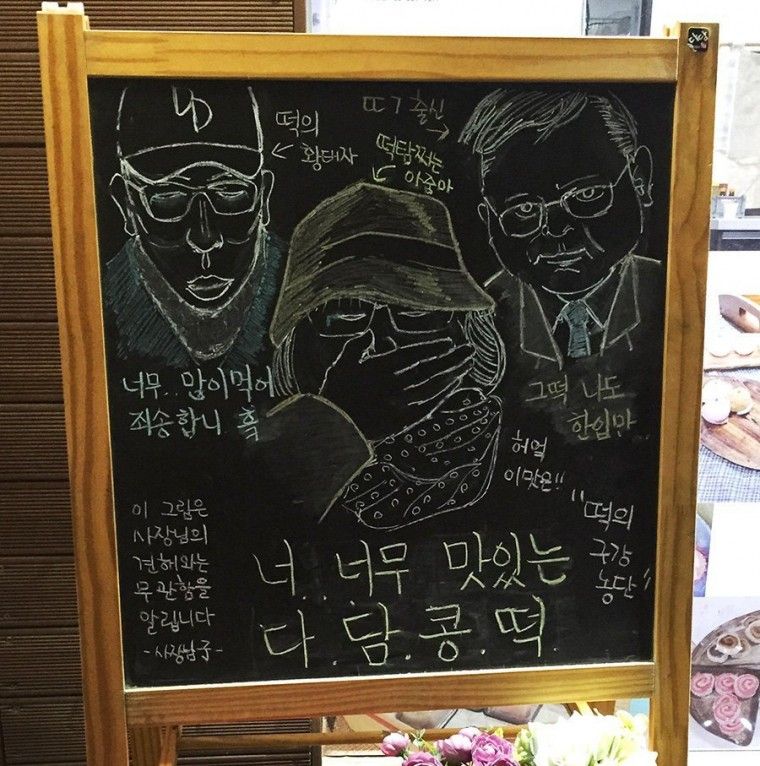 떡의
황태자
ㄸㄱ 출신
떡탐쩌는
아줌마
너무..많이먹어
죄송합니 흑
그떡 나도
한입만
허억
이맛은!!
"떡의
구강
농단"
이 그림은
사장님의
견해와는
무관함을
알립니다
너..너무 맛있는
다.담.콩.떡.